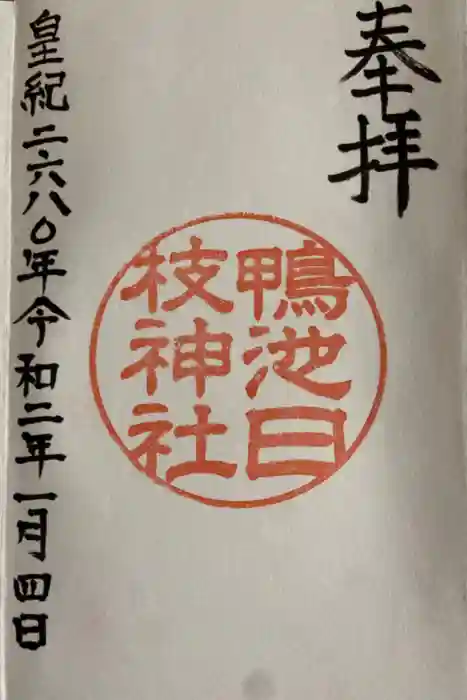 奉拝
鴨池日
枝神社
皇紀二六八〇年令和二年一月四日